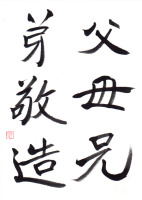 父母兄
弟敬造